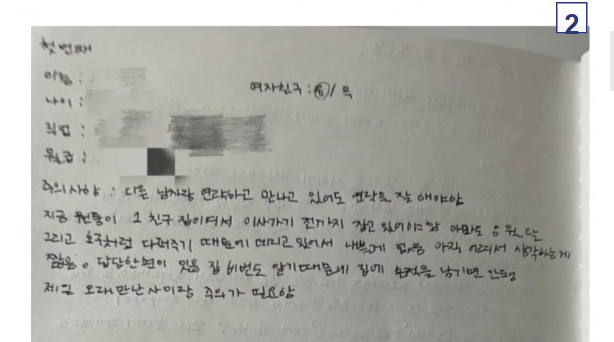 2
첫번째
이름 :
여자친구 : 유 / 무
나이 :
직업 :
월급 :
주의사항 : 다른 남자랑 연락하고 만나고 있어도 연락을 잘 해야함
지금 원룸이 그 친구 집이여서 이사가기 전까지 잡고 있어야함 아마도 달
그리고 호구처럼 다퍼주기 때문에 데리고 있어서 나쁠게 없음 아직 어려서 생각하는게
짧음. 답답한면이 있음 집 비번도 알기때문에 집에 흔적을 남기면 안됨
제일 오래만난 사이랑 주의가 필요함